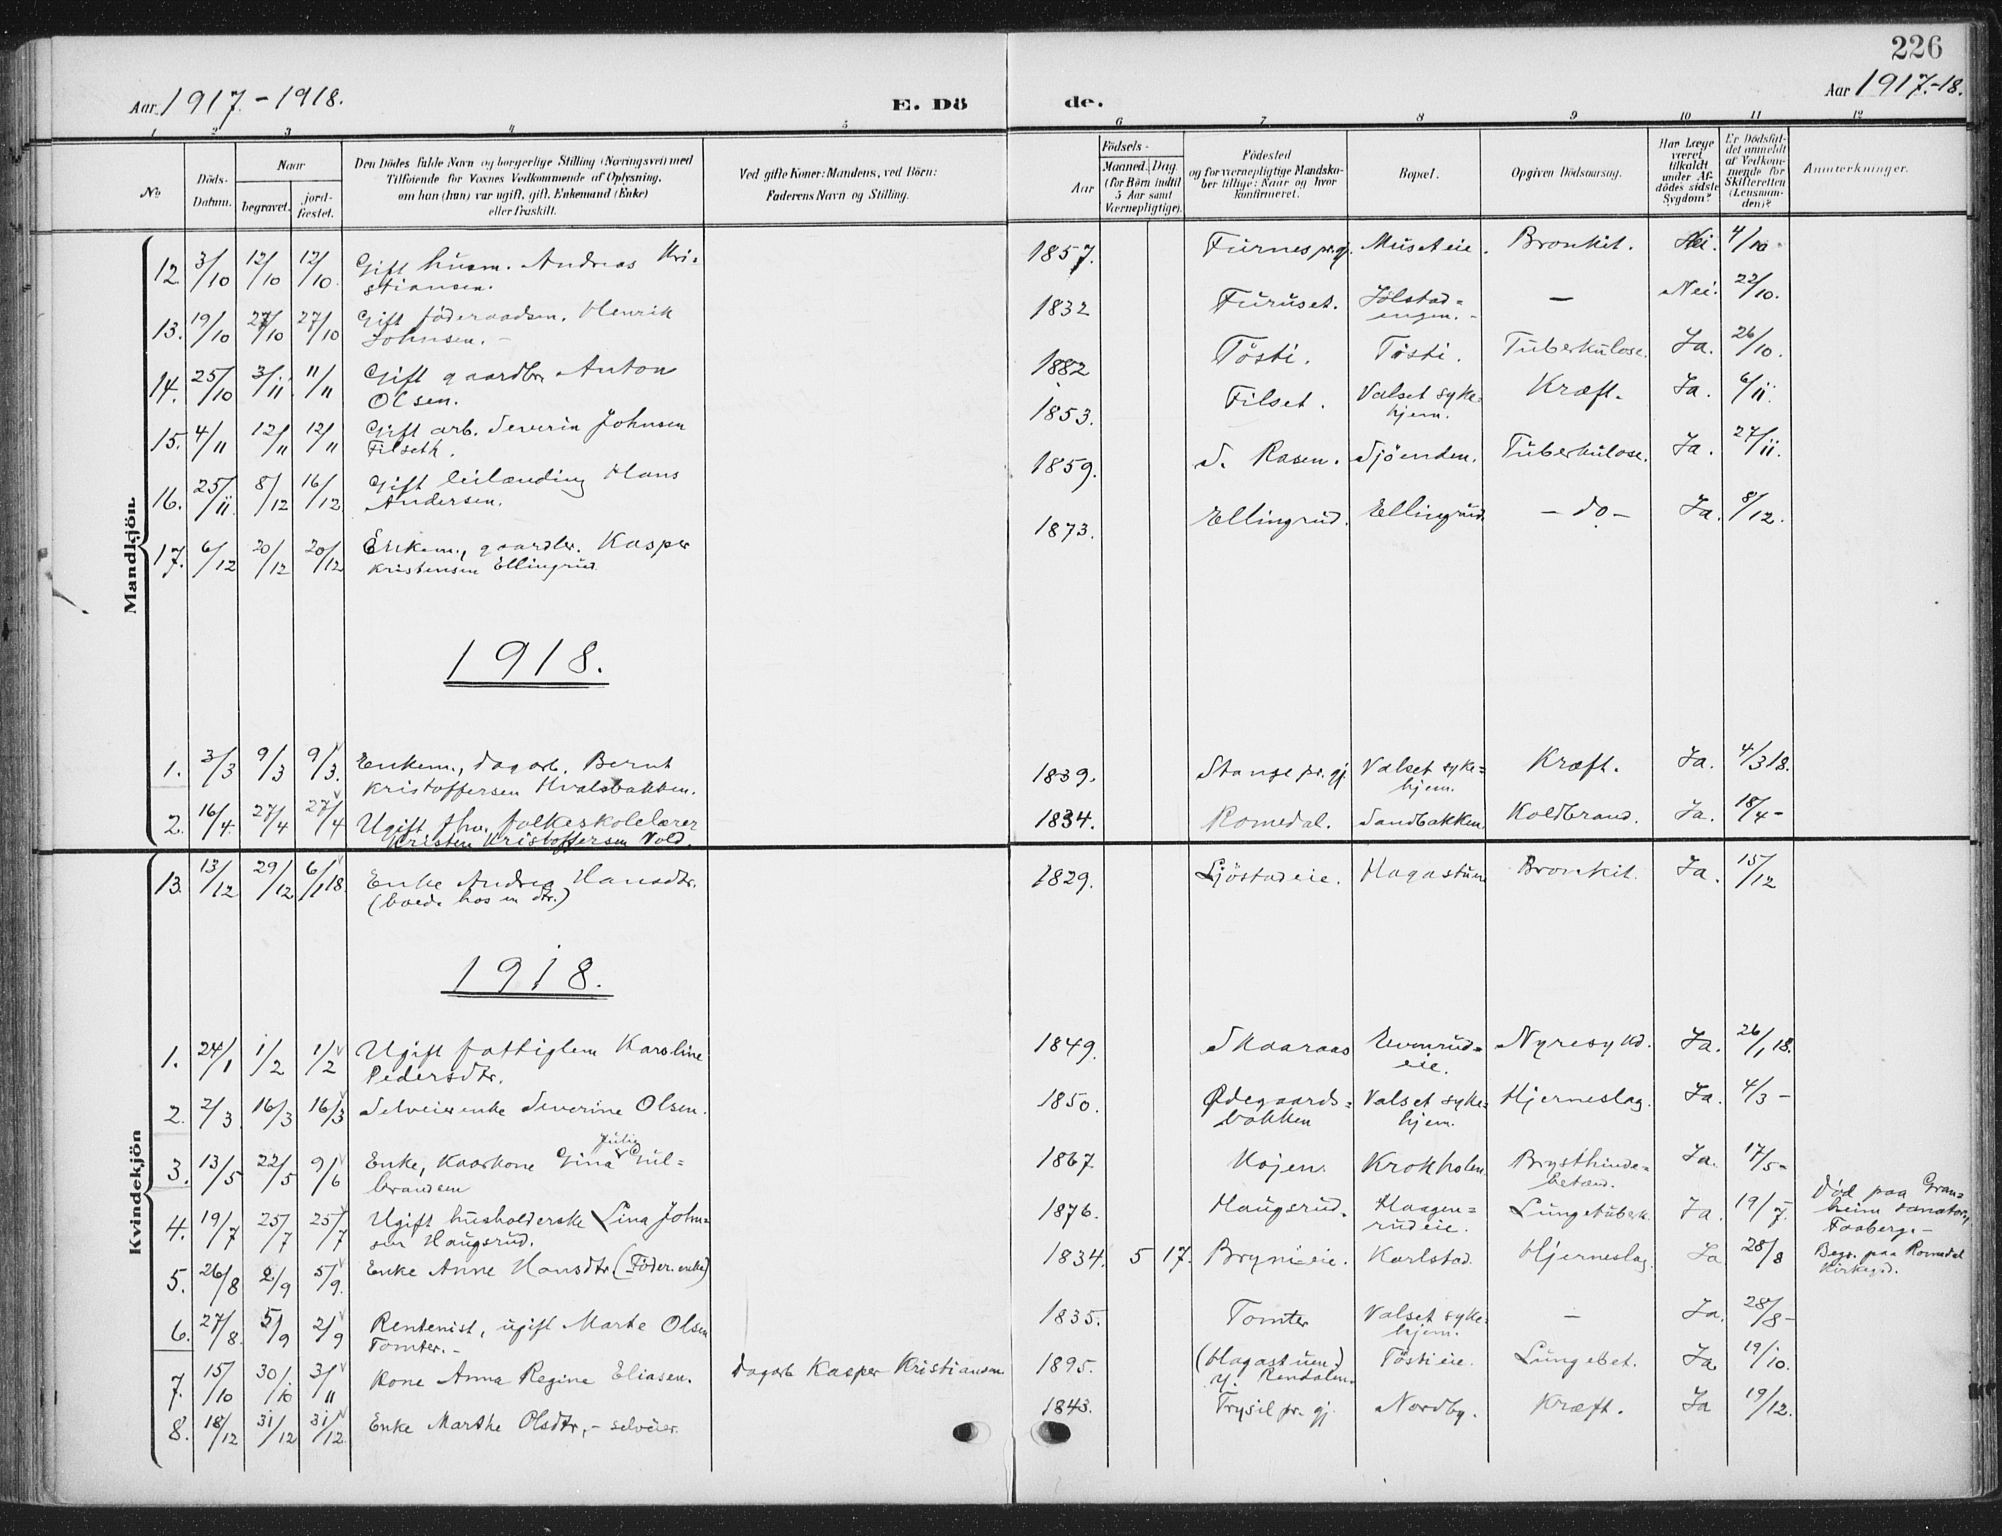 226
Aar 1917 - 1918.
E. Dö
de.
Aar 1917.-18.
1 2 3 4 5 6 7 8 9 10 11 12
No
Döds-Datum.
Naar
begravet.
jord-fæstet.
Den Dödes fulde Navn og borgerlige Stilling (Næringsvei) med
Tilföiende for Voxnes Vedkommende af Oplysning,
om han (hun) var ugift, gift, Enkemand (Enke)
eller fraskilt.
Ved gifte Koner: Mandens, ved Börn:
Faderens Navn og Stilling.
Födsels-
Aar
Maaned. Dag.
(for Börn indtil
5 Aar samt
Værnepligtige).
Födested
og for værnepligtige Mandska-
ber tillige: Naar og hvor
konfirmeret.
Bopæl.
Opgiven Dödsaarsag.
Har Læge
været
tilkaldt
under Af-
dödes sidste
Sygdom?
Er Dödsfal-
det anmeldt
af Vedkom-
mende for
Skifteretten
(Lensman-
den)?
Anmærkninger.
Mandkjön.
12. 3/10 12/10 12/10. Gift husm. Andreas Kri- 1857. Furnes pr.gj. Musæt eie. Bronkit. Nei. 4/10.
stiansen.
13. 19/10 27/10 27/10 Gift föderaadsm. Henrik 1832 Furuset. Jølstad= — Nei. 22/10.
Johnsen. - engen. -
14. 25/10 3/11. 11/11 Gift gaardbr. Anton 1882 Tösti. Tösti. Tuberkulose. Ja. 26/10.
Olsen.
15. 4/11 12/11 12/11 Gift arb. Severin Johnsen 1853. Filset. Valset syke= Kræft. Ja. 6/11.
Filseth. hjem.
16. 25/11 8/12 16/12 Gift leilænding Hans 1859. S. Rasen. Sjöenden. Tuberkulose. Ja. 27/11.
Andersen.
17. 6/12 20/12 20/12 Enkem., gaardbr. Kasper 1873. Ellingrud. Ellingrud - do - Ja. 8/12.
Kristensen Ellingrud
1918.
1. 3/3 9/3 9/3. Enkem., dagarb. Bernt 1839. Stange pr. gj. Valset syke= Kræft. Ja. 4/3 18.
Kristoffersen Hvalsbakken. hjem.
2. 16/4. 27/4 27/4 Ugift fhv. folkeskolelærer 1834. Romedal. Sandbakken Koldbrand. Ja. 18/4 -
Kristen Kristoffersen Vold.
Kvindekjön
13. 13/12 29/12 6/1 18 Enke Andrea Hansdtr. 1829. Ljöstad eie. Hagastuen Bronkit. Ja. 15/12
(boede hos en dtr.)
1918.
1. 24/1 1/2 1/2 Ugift fattiglem Karoline 1849. Skaaraas Evenrud= Nyresykd. Ja. 26/1 18.
Pedersdtr. eie.
2. 2/3 16/3 16/3 Selveierenke Severine Olsen. 1850. Ødegaards= Valset syke= Hjerneslag. Ja. 4/3 -
bakken hjem.
Julie
3. 13/5 22/5 9/6 Enke, Kaarkone Gina Gul= 1867 Kojen. Krokholen Brysthinde= Ja. 17/5 -
brandsen betænd.
4. 19/7 25/7 25/7 Ugift husholderske Lina John= 1876. Haugsrud. Haagen= Lungetuberk. Ja. 19/7. Död paa Gran=
sen Haugsrud. rud eie. heim sanator,
Faaberg. -
5. 26/8 2/9 5/9. Enke Anne Hansdtr. (Föder. enke) 1834. 5 17. Bryni eie. Karlstad. Hjerneslag. Ja 28/8 Begr. paa Romedal
Kirkegd.
6. 27/8. 5/9 2/9 Rentenist, ugift Marte Olsen 1835. Tomter Valset syke= — Ja. 28/8 -
Tomter. - hjem.
7. 15/10 30/10 3/11 Kone Anna Regine Eliasen. Dagarb Kasper Kristiansen 1895. (Hagastuen.) Tösti eie. Lungebet. Ja 19/10.
Y. Rendalen.
8. 18/12 31/12 31/12 Enke Marthe Olsdtr, - selveier. 1843. Trysil pr. gj. Nordby. Kræft. Ja 19/12.